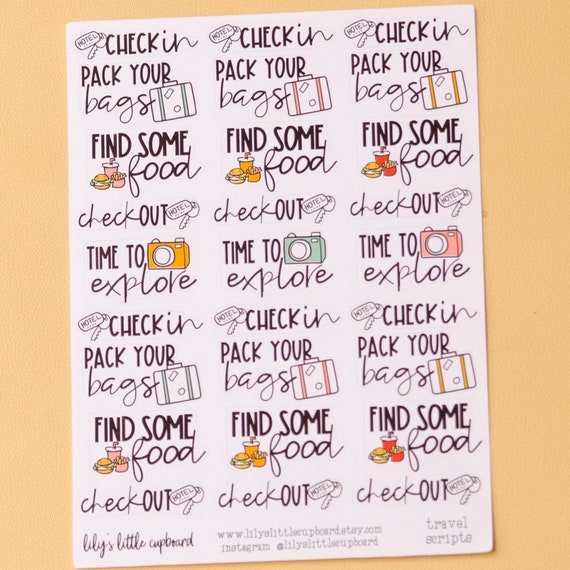 HOTEL CHECK in HOTEL CHECK in HOTEL CHECK in
PACK YOUR PACK YOUR PACK YOUR
bags bags bags
FIND SOME FIND SOME FIND SOME
food food food
check OUT HOTEL check OUT HOTEL check OUT HOTEL
TIME TO TIME TO TIME TO
explore explore explore
HOTEL CHECK in HOTEL CHECK in HOTEL CHECK in
PACK YOUR PACK YOUR PACK YOUR
bags bags bags
FIND SOME FIND SOME FIND SOME
food food food
check OUT HOTEL check OUT HOTEL check OUT HOTEL
lily's little cupboard www.lilyslittlecupboard.etsy.com travel
instagram @lilyslittlecupboard scripts